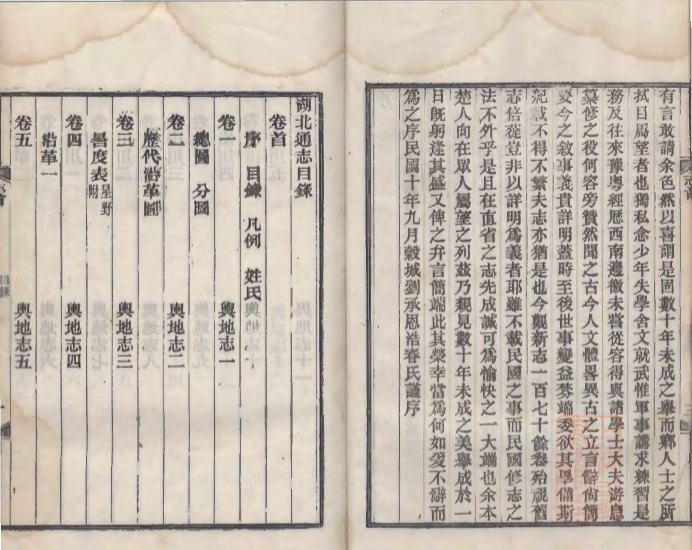 有言敢請余色然以喜謂是固數十年未成之舉而鄉人士之所
拭目屬望者也獨私念少年失學舍文就武惟軍事講求練習是
務及往來豫粵經歷西南邊徼未嘗從容得與諸學士大夫游息
纂修之役何容旁贊然聞之古今人文體畧異古之立言辭尙簡
要今之敘事義貴詳明蓋時至後世事變益棼端委欲其畢備斯
紀載不得不繁夫志亦猶是也今觀新志一百七十餘卷殆視舊
志倍蓰豈非以詳明爲義者耶雖不載民國之事而民國修志之
法不外乎是且在直省之志先成誠可爲愉快之一大端也余本
楚人向在眾人屬望之列茲乃親見數十年未成之美舉成於一
日旣躬逢其盛又俾之弁言簡端此其榮幸當爲何如爰不辭而
爲之序民國十年九月穀城劉承恩浩春氏謹序
湖北通志目錄
卷首
序 目錄 凡例 姓氏
卷一 輿地志一
總圖 分圖
卷二 輿地志二
歷代沿革圖
卷三 輿地志三
晷度表 星野附
卷四 輿地志四
沿革一
卷五 輿地志五